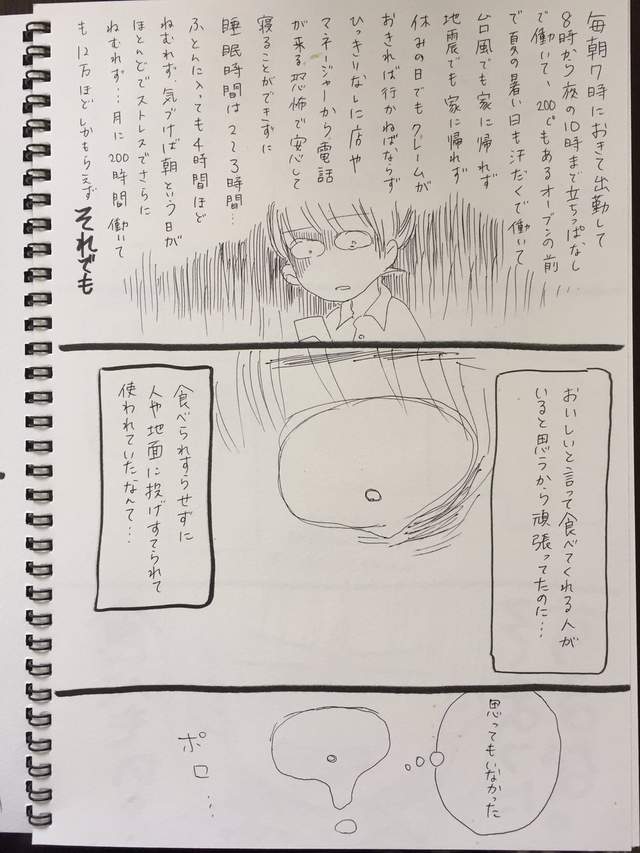 毎朝7時におきて出勤して
8時から夜の10時まで立ちっぱなし
で働いて、200℃もあるオーブンの前
で夏の暑い日も汗だくで働いて
台風でも家に帰れず
地震でも家に帰れず
休みの日でもクレームが
おきれば行かねばならず
ひっきりなしに店や
マネージャーから電話
が来る恐怖で安心して
寝ることができずに
睡眠時間は2〜3時間…
ふとんに入っても4時間ほど
ねむれず、気づけば朝という日が
ほとんどでストレスでさらに
ねむれず?…月に200時間働いて
も12万ほどしかもらえず
それでも
おいしいと言って食べてくれる人が
いると思うから頑張ってたのに…
食べられすらせずに
人や地面に投げすてられて
使われていたなんて…
思ってもいなかった
ポロ…